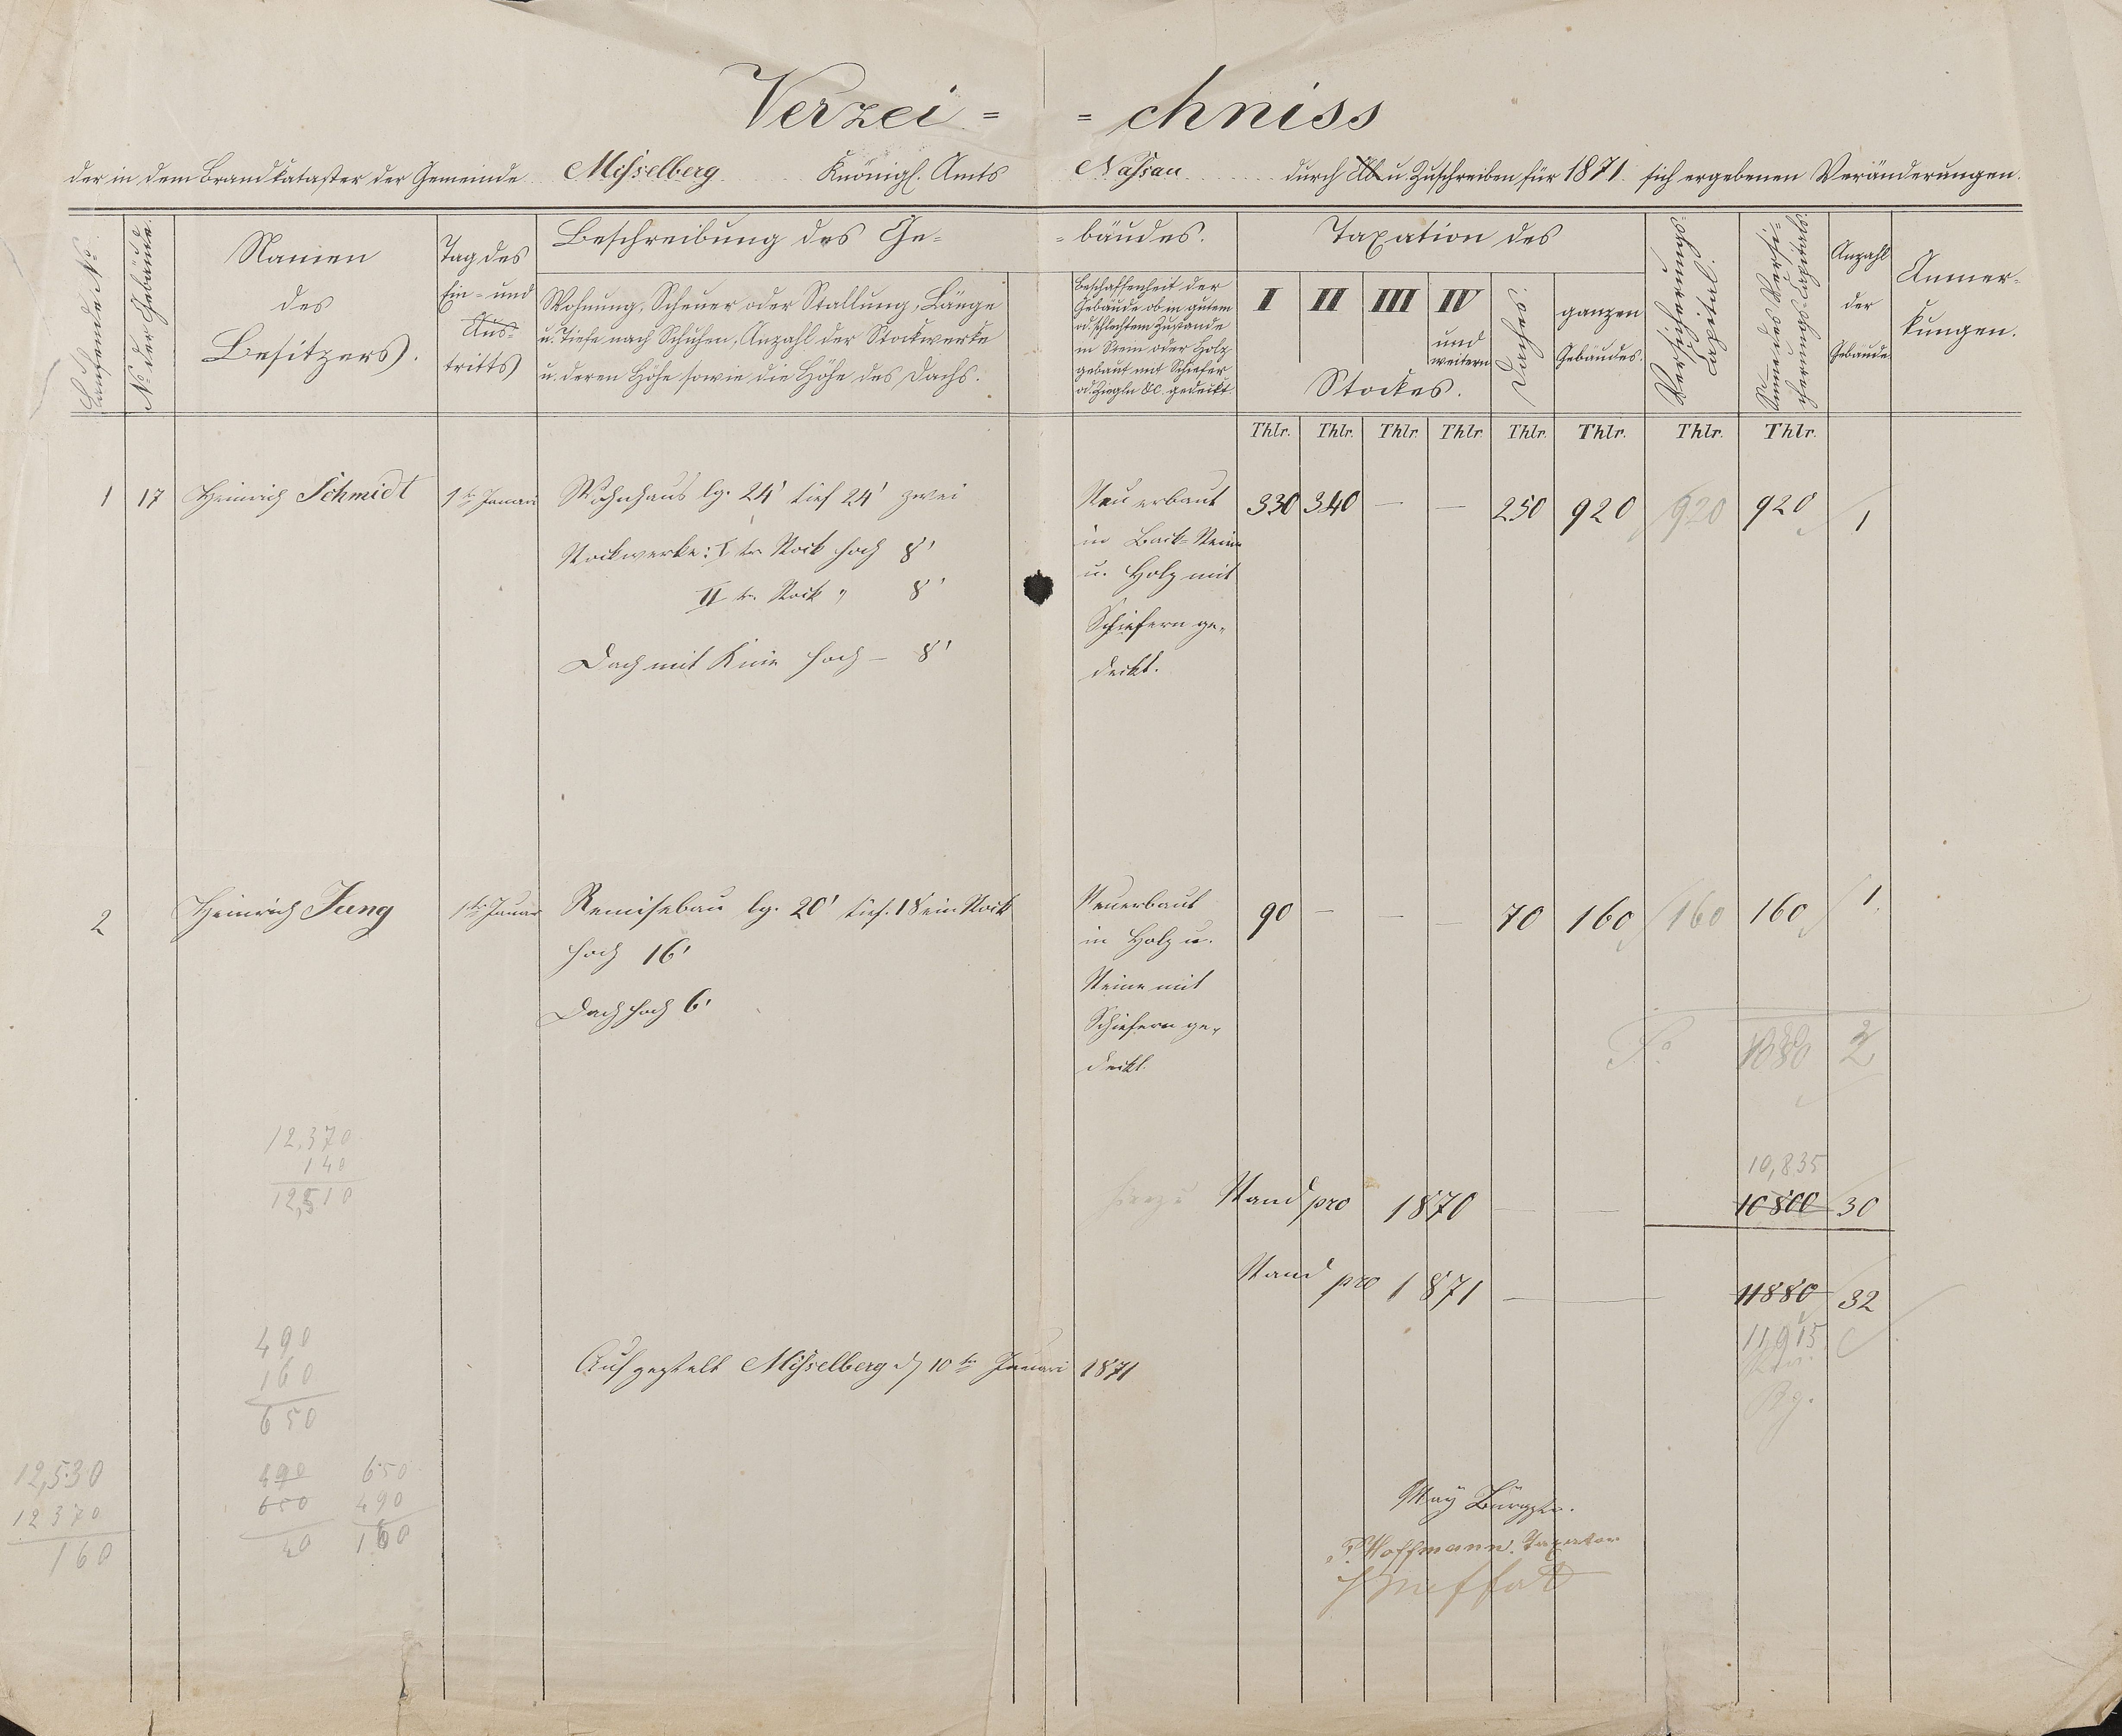 Verzei = = chniss
der in dem Brandkataster der Gemeinde Misselberg Königl. Amts Nassau durch Ab u. Zuschreiben für 1871 sich ergebenen Veränderungen.
Laufende No
No der Gebäude.
Namen
des
Besitzers.
Tag des
Ein- und
Aus-
tritts
Beschreibung des Ge- -bäudes.
Wohnung, Scheuer oder Stallung, Länge
u. Tiefe nach Schuhen, Anzahl der Stockwerke
u. deren Höhe sowie die Höhe des Dachs.
Beschaffenheit der
Gebäude ob in gutem
od. schlechtem Zustande
in Stein oder Holz
gebaut mit Schiefer
od. Ziegln &c. gedeckt.
Taxation des
I II III IV
und
weitern
Stockes.
Daches.
ganzen
Gebäudes.
Versicherungs-
Capital.
Summe des Versi-
cherungs Capitals.
Anzahl
der
Gebäude
Anmer-
kungen.
Thlr. Thlr. Thlr. Thlr. Thlr. Thlr. Thlr. Thlr.
1 17 Heinrich Schmidt 1te Januar Wohnhaus lg. 24' tief 24' zwei Neu erbaut 330 340 — — 250 920 920 920 1
Stockwerke: I ter Stock hoch 8' in Back-Stein
II ter Stock " 8' u. Holz mit
Schiefern ge-
Dach mit Knie hoch – 8' deckt.
2 Heinrich Jung 1te Januar Remisebau lg. 20' tief. 18 ein Stock Neuerbaut 90 — — — 70 160 160 160 1.
hoch 16' in Holz u.
Steine mit
Dach hoch 6' Schiefern ge-
deckt.
1080 2
12,370
140
12,510
10,835
hierzu Stand pro 1870 — — 10800 30
Stand pro 1871 — — 11880 32
11,915
490
160
650
Aufgestelt Misselberg d 10te Januari 1871
12,530
12370
160
490 650
650 490
40 160
May Bürgstr.
P. Hoffmann. Taxator